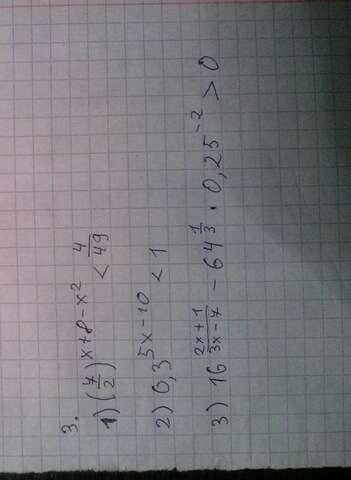 3.
1) (7/2)^(x+8-x²) < 4/49
2) 0,3^(5x-10) < 1
3) 16^((2x+1)/(3x-7)) - 64^(1/3) · 0,25^(-2) > 0